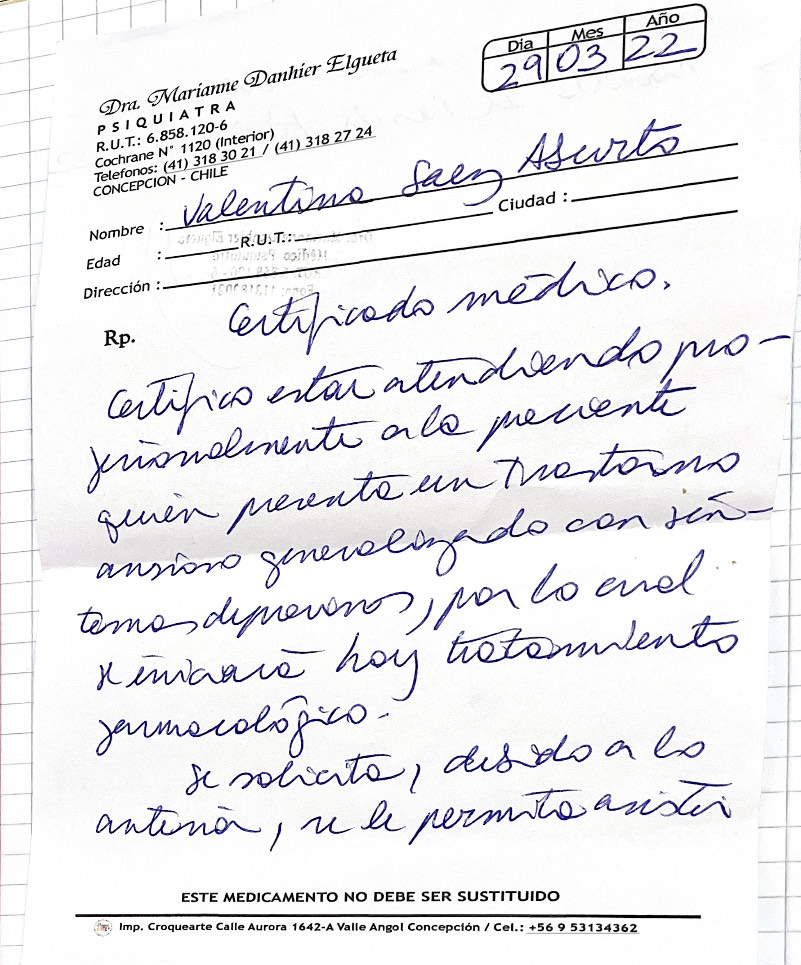 Dra. Marianne Danhier Elgueta
PSIQUIATRA
R.U.T.: 6.858.120-6
Cochrane N° 1120 (Interior)
Telefonos: (41) 318 30 21 / (41) 318 27 24
CONCEPCION - CHILE
Dia Mes Año
29 03 22
Nombre : Valentina Saez Ascurto
Edad : R.U.T.: Ciudad :
Dirección :
Rp. Certificado médico.
Certifico estar atendiendo pro-
fesionalmente a la paciente
quien presenta un trastorno
ansioso generalizado con sín-
tomas depresivos, por lo cual
se iniciará hoy tratamiento
farmacológico.
Se solicita, debido a lo
anterior, se le permita asistir
ESTE MEDICAMENTO NO DEBE SER SUSTITUIDO
Imp. Croquearte Calle Aurora 1642-A Valle Angol Concepción / Cel.: +56 9 53134362